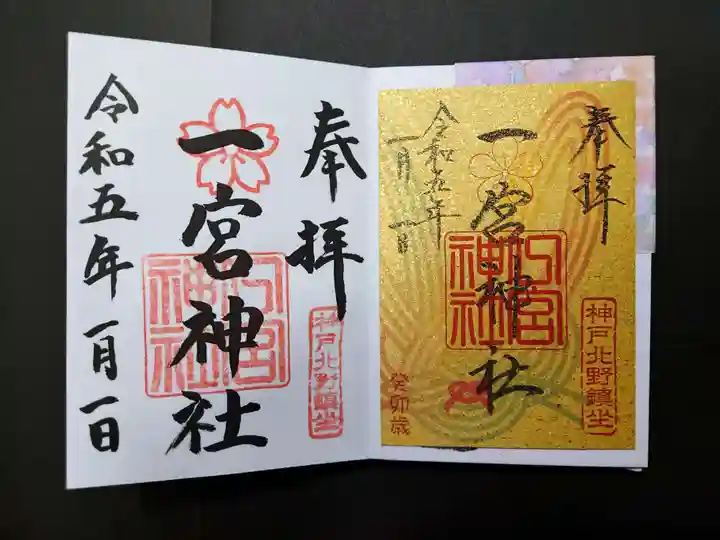 奉拝
一宮神社
一宮神社
神戸北野鎮坐
令和五年一月一日
奉拝
一宮神社
一宮神社
神戸北野鎮坐
令和五年
一月一日
癸卯歳